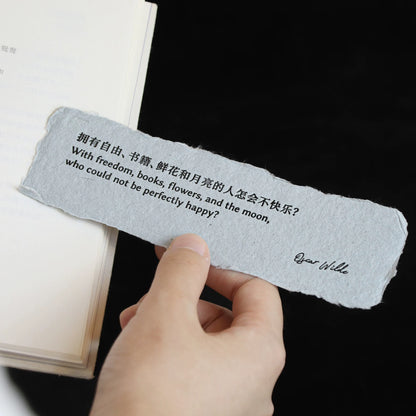 拥有自由、书籍、鲜花和月亮的人怎会不快乐？
With freedom, books, flowers, and the moon,
who could not be perfectly happy?
Oscar Wilde